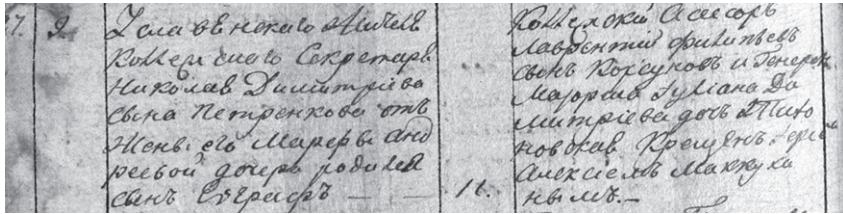 27. 9. Уславѣнскаго жителя
Коллежскаго Секретаря
Николая Димитріева
сына Петренкова отъ
Жены его Марѳы Анд
реевой дочери родился
сынъ Евграфъ — 11.
Коллежскій Асесоръ
Лаврентій Филипьевъ
сынъ Корсуновъ и Генерал
Маіорша Іуліана Ди
митріева дочь
Алексіемъ Макжуха
нымъ. —